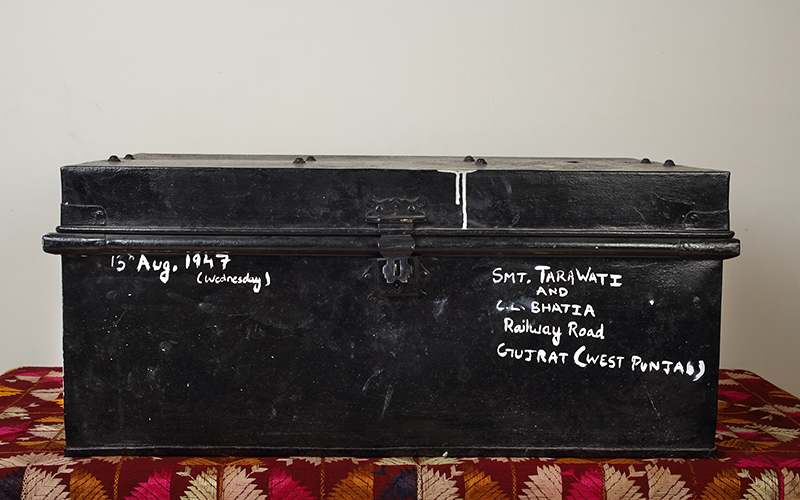 13th Aug. 1947
(Wednesday)
SMT. TARAWATI
AND
C.L. BHATIA
Railway Road
GUJRAT (WEST PUNJAB)